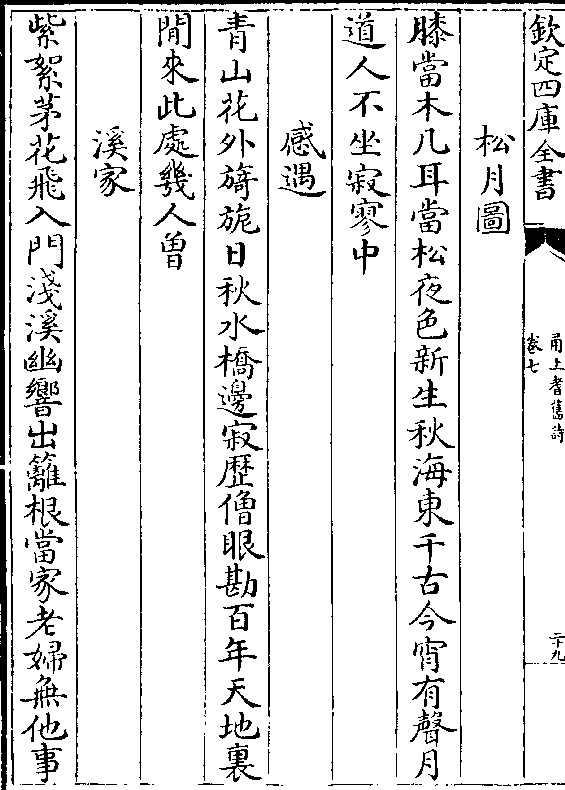 欽定四庫全書
甬上耆舊詩
卷七
二十九
松月圖
膝當木几耳當松夜色新生秋海東千古今宵有聲月
道人不坐寂寥中
感遇
青山花外旖旎日秋水橋邊寂歷僧眼勘百年天地裏
閒來此處幾人曽
溪家
紫絮茅花飛入門淺溪幽響出籬根當家老婦無他事